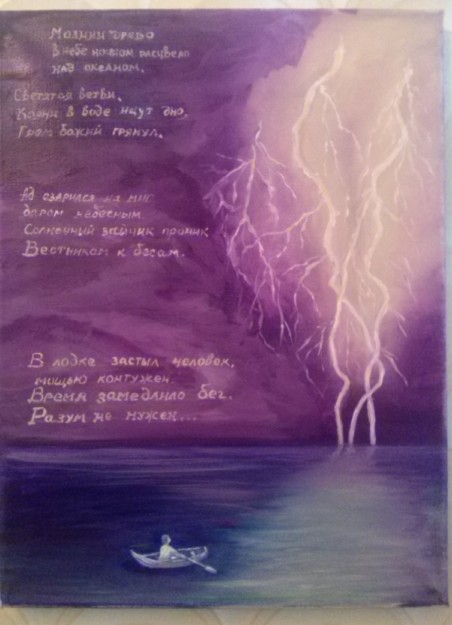 Молнии дерево
в небе ночном расцвело
над океаном.
Светятся ветви,
Корни в воде ищут дно,
Гром божий грянул.
Ад озарился на миг
даром небесным.
Солнечный зайчик проник
Вестником к бесам.
В лодке застыл человек,
мощью контужен.
Время замедлило бег.
Разум не нужен...